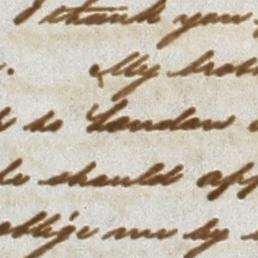 I thank you
My broth
to London
should app
oblige me by